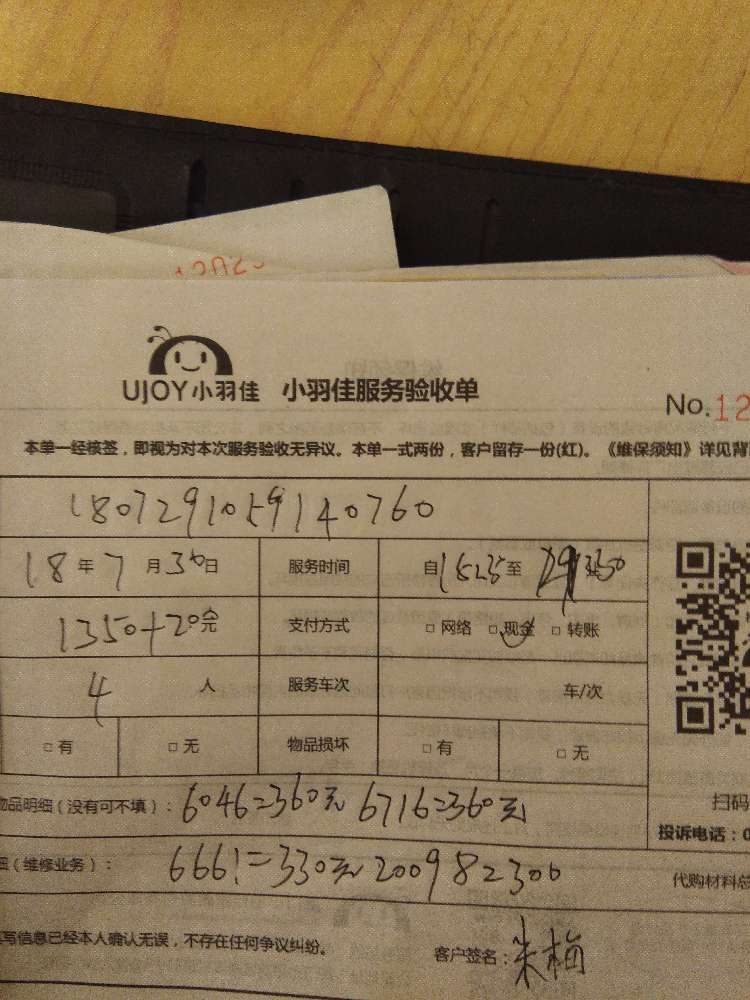 UJOY小羽佳 小羽佳服务验收单
No.12
本单一经核签，即视为对本次服务验收无异议。本单一式两份，客户留存一份(红)。《维保须知》详见背
1807291059140760
18年7月30日 服务时间 自1525至
1350+20元 支付方式 □网络 □现金 □转账
4 人 服务车次 车/次
□有 □无 物品损坏 □有 □无
物品明细（没有可不填）： 6046=360元 6716=360元
扫码
投诉电话：0
（维修业务）： 6661=330元 200982300
代购材料总
写信息已经本人确认无误，不存在任何争议纠纷。
客户签名：朱梅